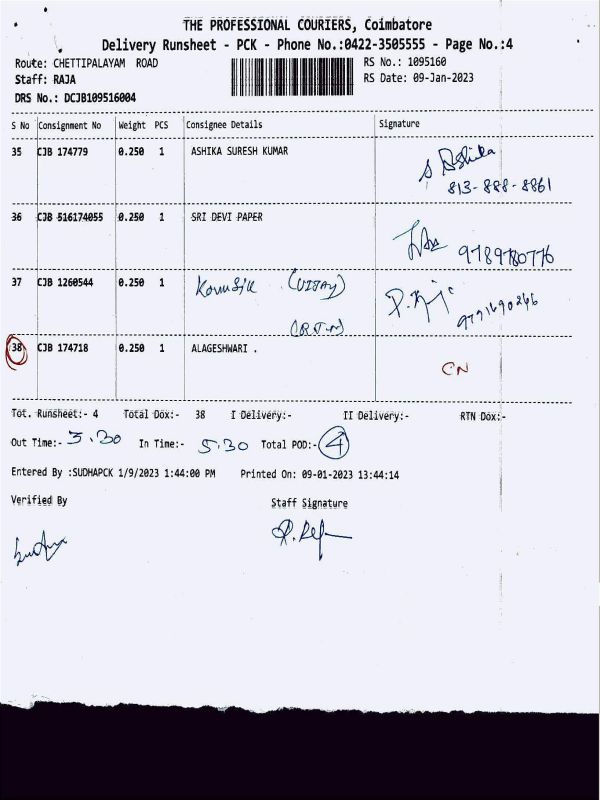 THE PROFESSIONAL COURIERS, Coimbatore
Delivery Runsheet - PCK - Phone No.:0422-3505555 - Page No.:4
Route: CHETTIPALAYAM ROAD RS No.: 1095160
Staff: RAJA RS Date: 09-Jan-2023
DRS No.: DCJB109516004
S No Consignment No Weight PCS Consignee Details Signature
35 CJB 174779 0.250 1 ASHIKA SURESH KUMAR S Ashika
813-888-8861
36 CJB 516174055 0.250 1 SRI DEVI PAPER
9789780776
37 CJB 1260544 0.250 1 (VIJAY)
38 CJB 174718 0.250 1 ALAGESHWARI .
CN
Tot. Runsheet:- 4 Total Dox:- 38 I Delivery:- II Delivery:- RTN Dox:-
Out Time:- 3.30 In Time:- 5.30 Total POD:- 4
Entered By :SUDHAPCK 1/9/2023 1:44:00 PM Printed On: 09-01-2023 13:44:14
Verified By Staff Signature